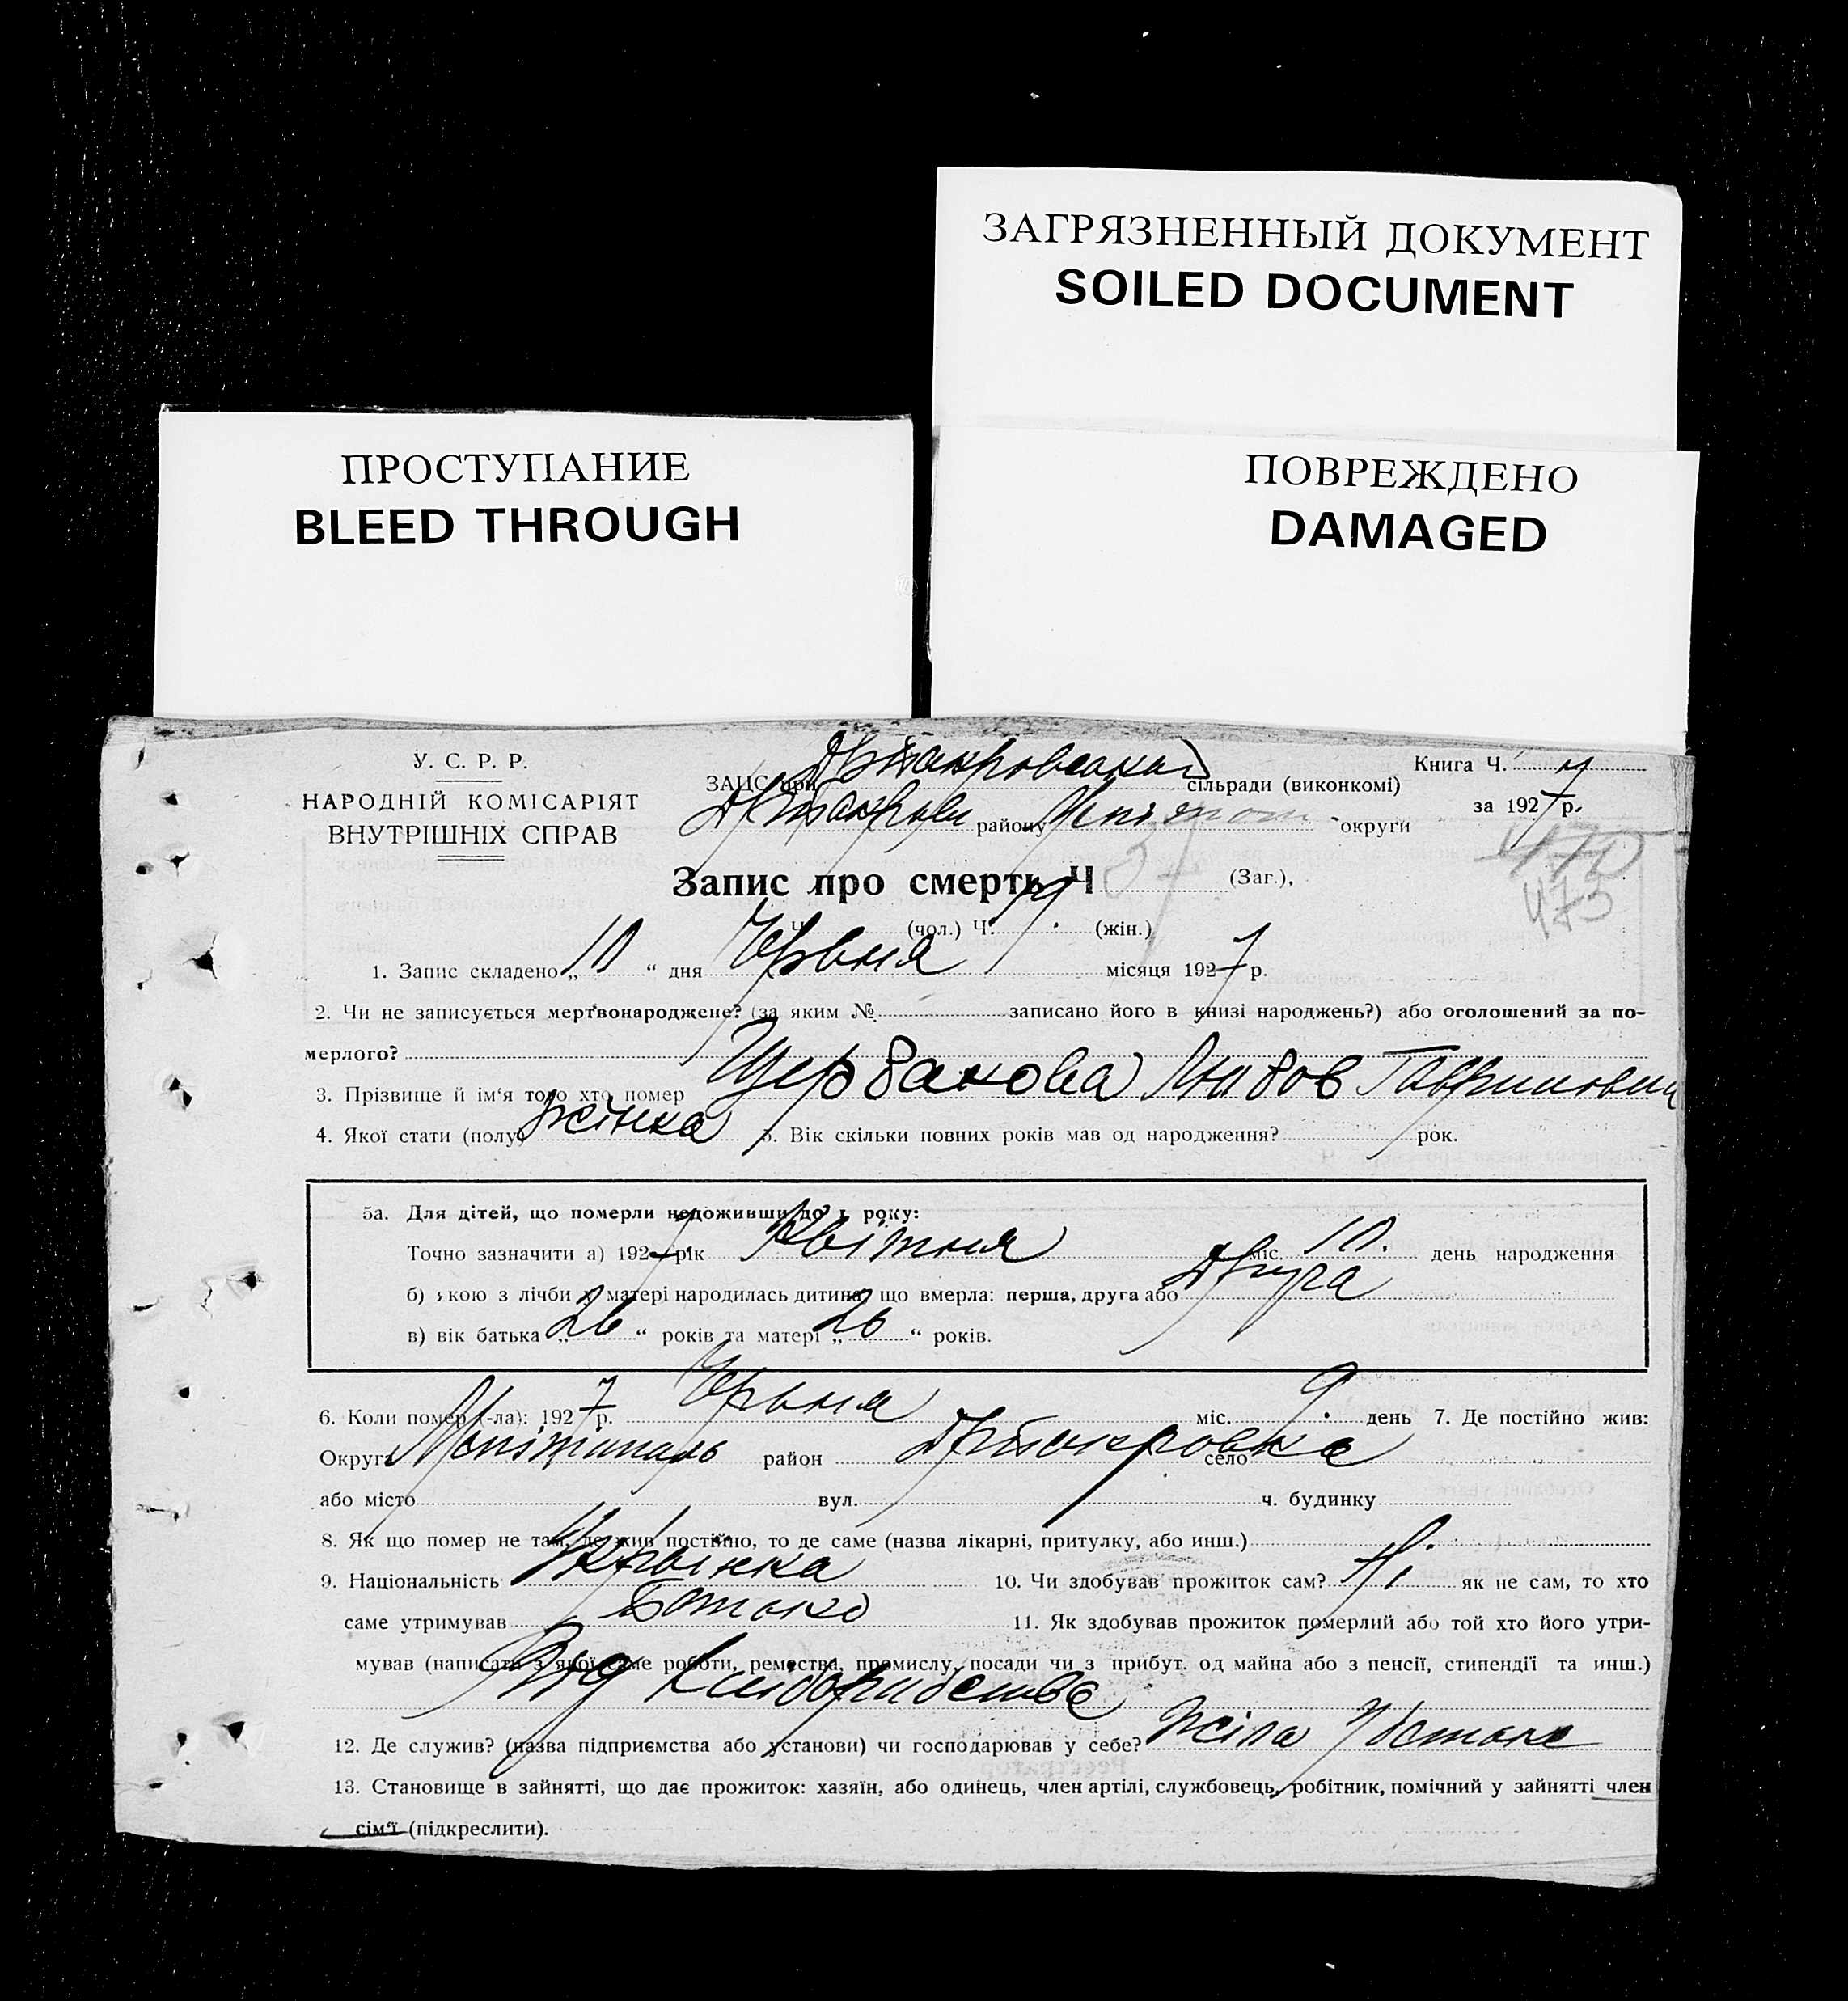 ЗАГРЯЗНЕННЫЙ ДОКУМЕНТ
SOILED DOCUMENT
ПРОСТУПАНИЕ
BLEED THROUGH
ПОВРЕЖДЕНО
DAMAGED
У. С. Р. Р.
НАРОДНІЙ КОМІСАРІЯТ
ВНУТРІШНІХ СПРАВ
ЗАГС при сільради (виконкомі)
району округи
Книга Ч.
за 1927 р.
470
473
Запис про смерть Ч (Заг.),
Ч. (чол.) Ч. (жін.)
1. Запис складено „10“ дня Червня місяця 1927 р.
2. Чи не записується мертвонароджене? (за яким № записано його в книзі народжень?) або оголошений за по-
мерлого?
3. Прізвище й ім'я того хто помер Щербакова Любов
4. Якої стати (полу) жінка 5. Вік скільки повних років мав од народження? рок.
5а. Для дітей, що померли недоживши до 1 року:
Точно зазначити а) 1927 рік Квітня міс. 10. день народження
б) якою з лічби у матері народилась дитина, що вмерла: перша, друга або Друга
в) вік батька „26“ років та матері „26“ років.
6. Коли помер (-ла): 1927 р. Червня міс. 9. день 7. Де постійно жив:
Округа район село
або місто вул. ч. будинку
8. Як що помер не там, де жив постійно, то де саме (назва лікарні, притулку, або инш.)
9. Національність Українка 10. Чи здобував прожиток сам? Ні як не сам, то хто
саме утримував Батько 11. Як здобував прожиток померлий або той хто його утри-
мував (написати з якої саме роботи, ремества, промислу, посади чи з прибут. од майна або з пенсії, стипендії та инш.)
Від
12. Де служив? (назва підприємства або установи) чи господарював у себе? Жіла
13. Становище в зайнятті, що дає прожиток: хазяїн, або одинець, член артілі, службовець, робітник, помічний у зайнятті член
сім'ї (підкреслити).